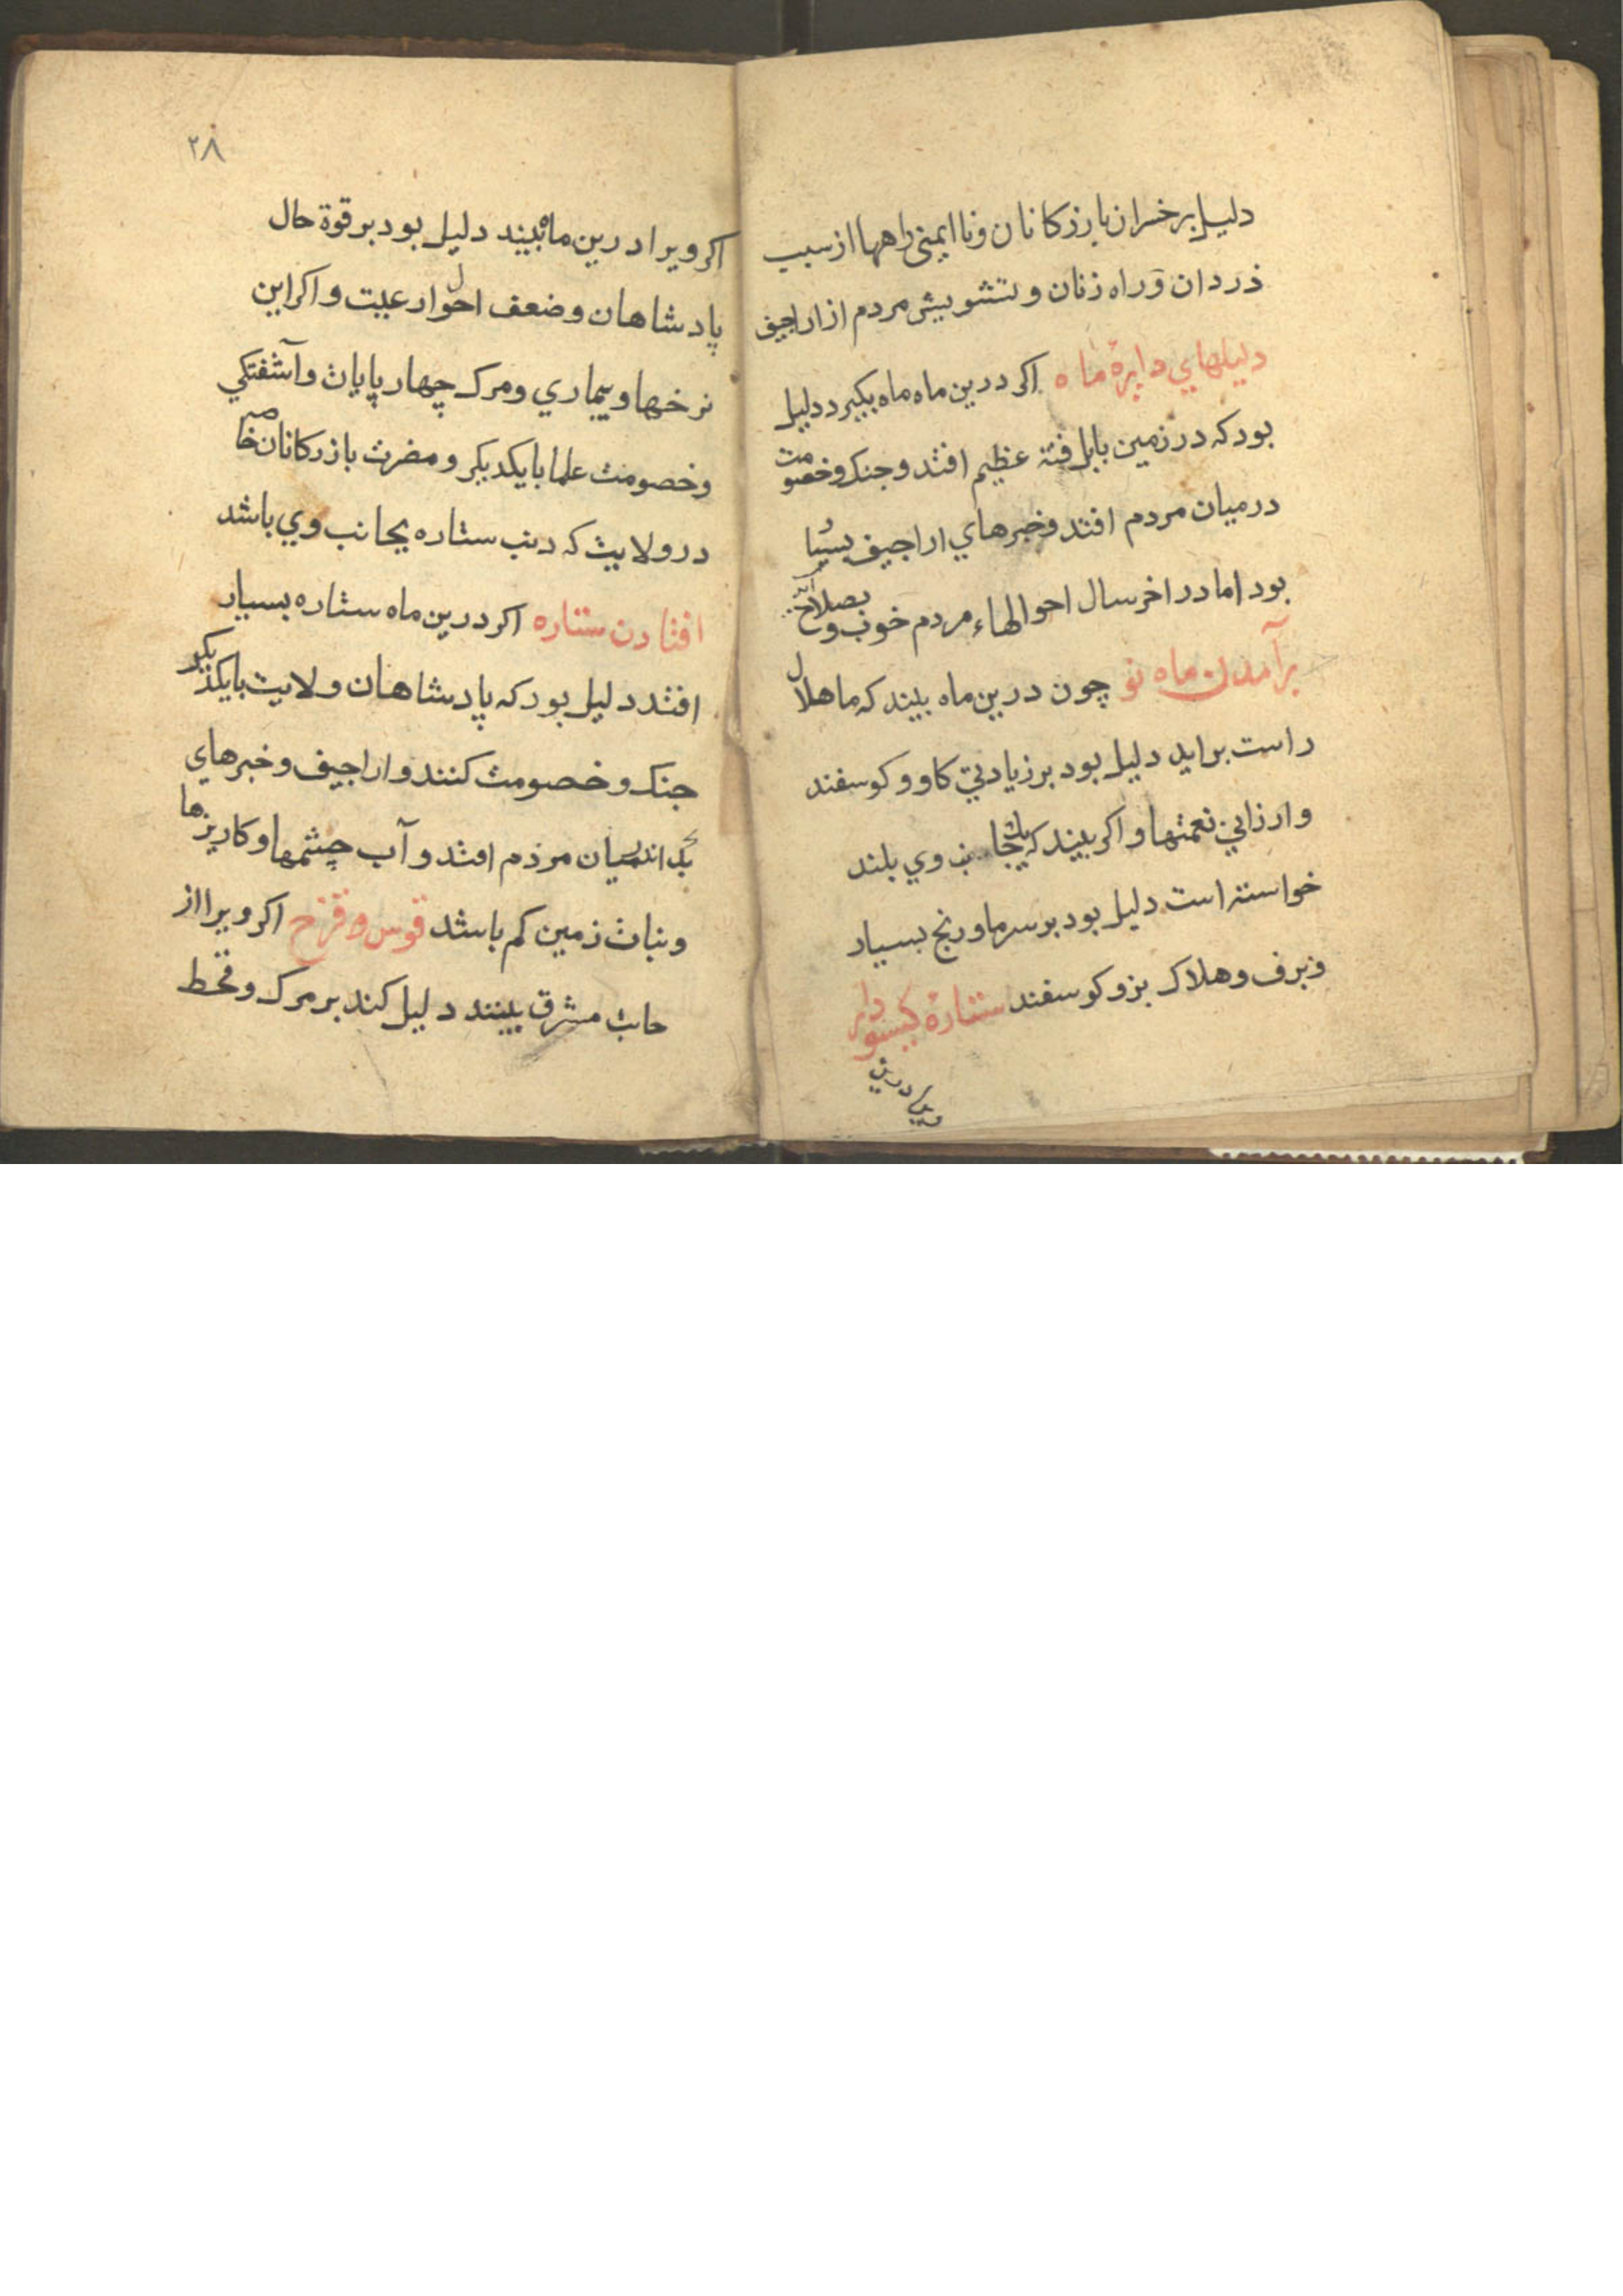 دلیل بر خسران بازرکانان و نا ایمنی راهها از سبب
دزدان و راه زنان و تشویش مردم از اراجیف
دلیلهاي دایرۀ ماه اکر درین ماه ماه بکیرد دلیل
بود که در زمین بابل فتنۀ عظیم افتد و جنک و خصومت
در میان مردم افتد و خبرهاي اراجیف بسیار
بود اما در اخر سال احوالهاء مردم خوب و بصلاح آید
برآمدن ماه نو چون درین ماه بیند که ما هلال
راست براید دلیل بود بر زیادتي کاو و کوسفند
و ارزاني نعمتها و اکر بیند که یک جانب وي بلند
خواسته است دلیل بود بر سرما و رنج بسیار
و برف و هلاک بز و کوسفند ستارۀ کیسو دار
درین
۳۸
اکر ویرا درین ماه بیند دلیل بود بر قوة حال
پادشاهان و ضعف احوال رعیت و اکر این
نرخها و بیماري و مرک چهار پایان و آشفتکي
و خصومت علما با یکدیکر و مضرت بازرکانان خاصه
در ولایت که دنب ستاره بجانب وي باشد
افتادن ستاره اکر درین ماه ستاره بسیار
افتد دلیل بود که پادشاهان ولایت با یکدیکر
جنک و خصومت کنند و اراجیف و خبرهاي
بد اندر میان مردم افتد و آب چشمها و کاریزها
و نبات زمین کم باشد قوس و قزح اکر ویرا از
جانب مشرق بینند دلیل کند بر مرک و قحط